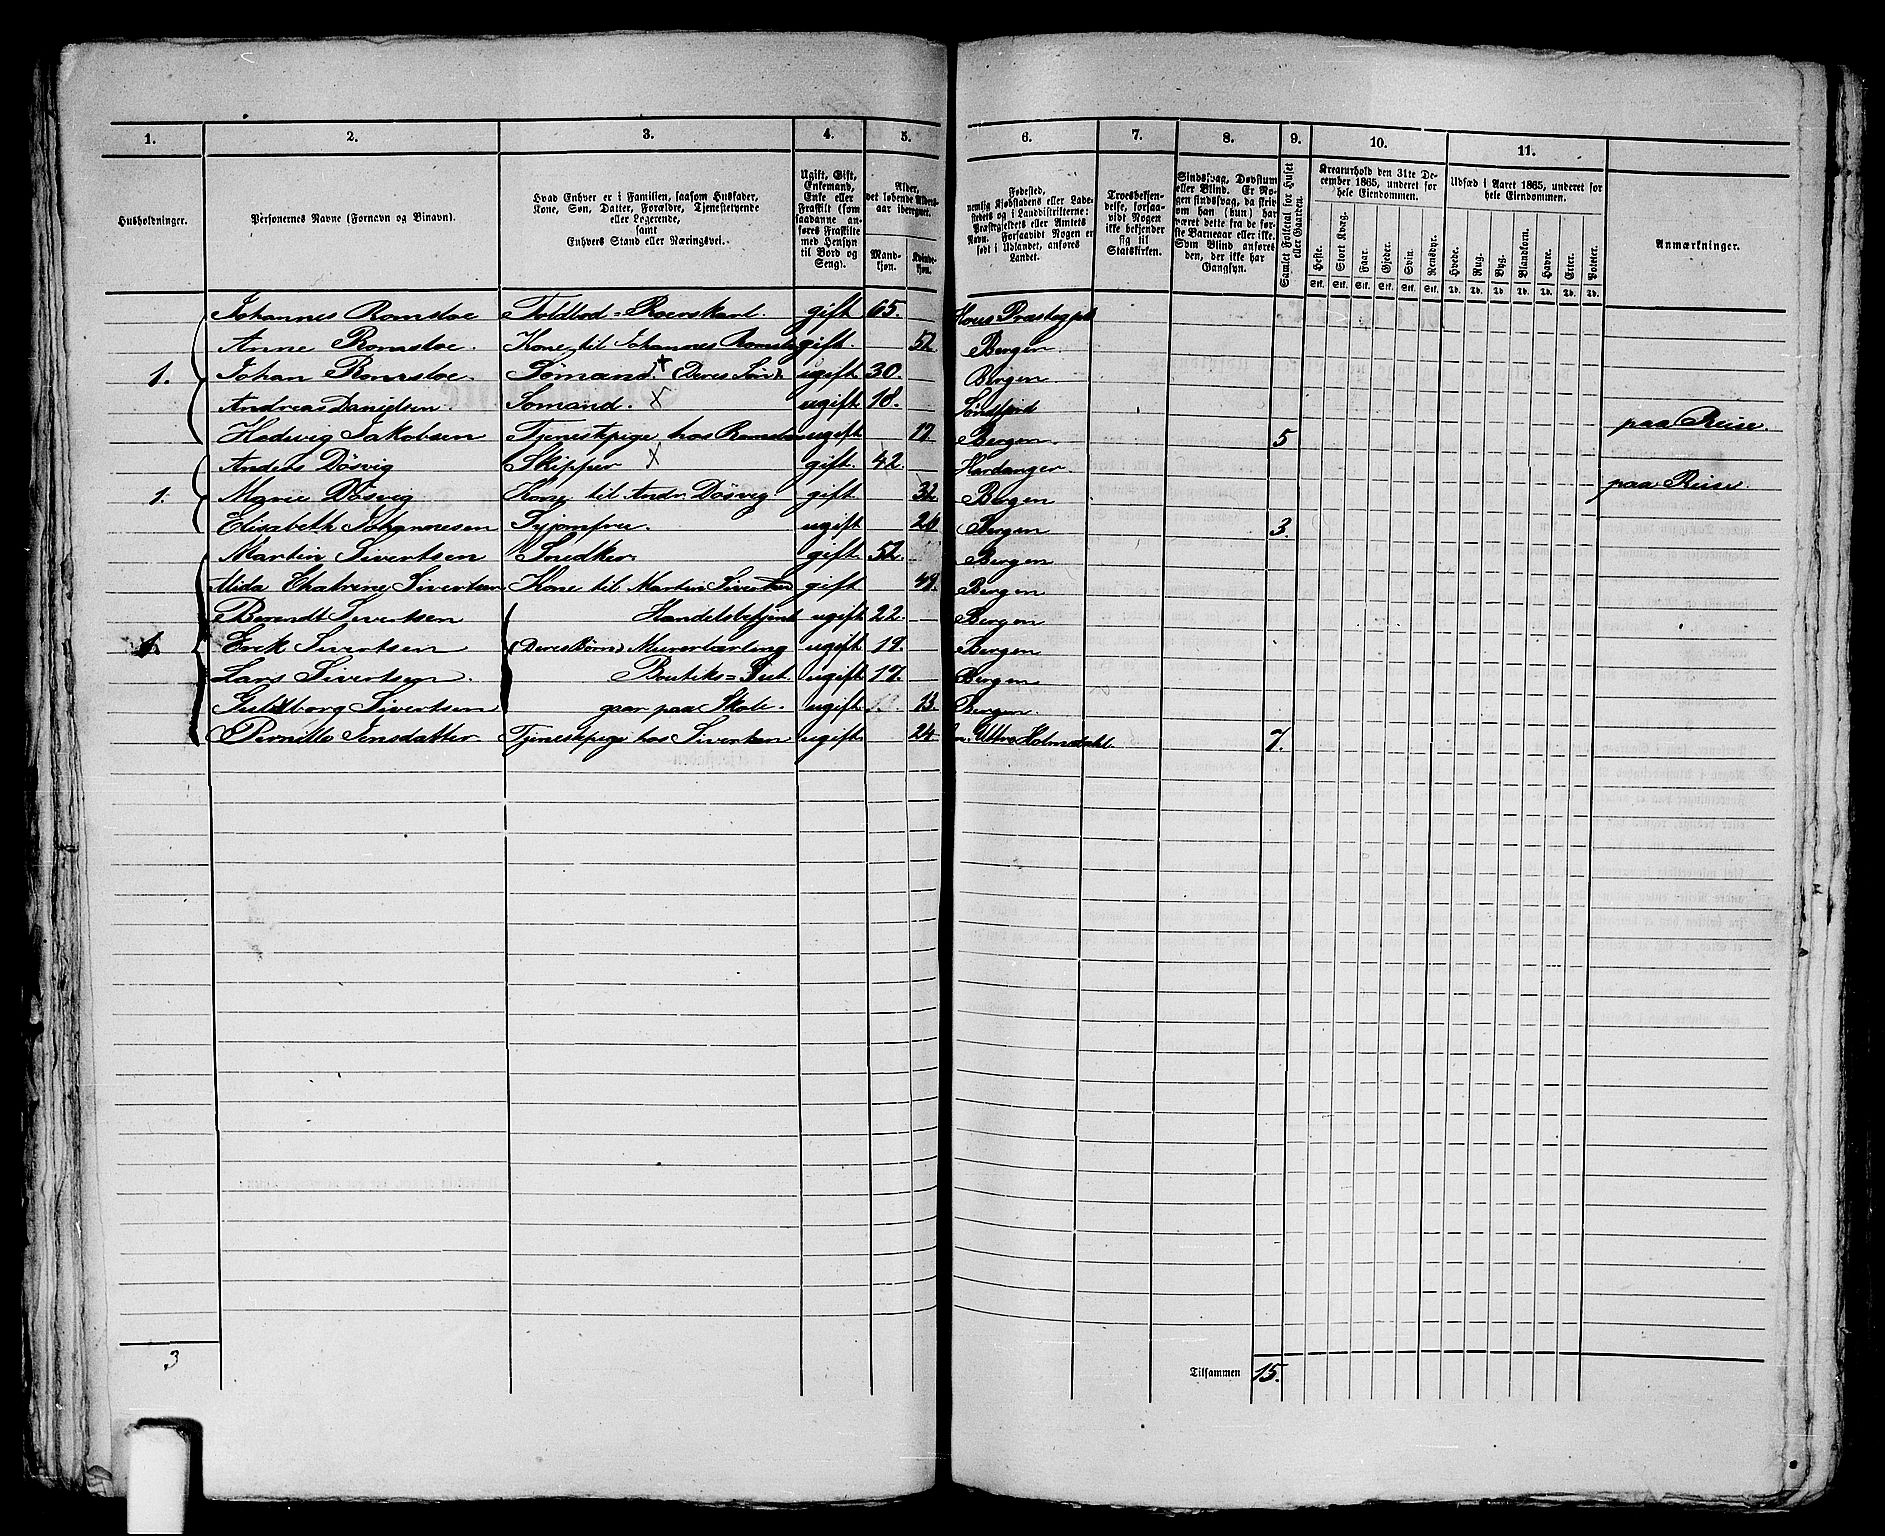 1. 2. 3. 4. 5. 6. 7. 8. 9. 10. 11.
Husholdninger.
Personernes Navne (Fornavn og Binavn).
Hvad Enhver er i Familien, saasom Husfader,
Kone, Søn, Datter, Forældre, Tjenestetyende
eller Logerende,
samt
Enhvers Stand eller Næringsvei.
Ugift, Gift,
Enkemand,
Enke eller
Fraskilt (som
saadanne an-
føres Fraskilte
med Hensyn
til Bord og
Seng).
Alder,
det løbende Alders-
aar iberegnet.
Mand-
kjøn.
Kvinde-
kjøn.
Fødested,
nemlig Kjøbstadens eller Lade-
stedets og i Landdistrikterne:
Præstegjeldets eller Amtets
Navn. Forsaavidt Nogen er
født i Udlandet, anføres
Landet.
Troesbekjen-
delse, forsaa-
vidt Nogen
ikke bekjender
sig til
Statskirken.
Sindssvag, Døvstum
eller Blind. Er No-
gen sindssvag, da skriv
om han (hun) har
været dette fra de før-
ste Barneaar eller ikke.
Som Blind anføres
den, der ikke har
Gangsyn.
Samlet Folketal for Huset
eller Gaarden.
Kreaturhold den 31te De-
cember 1865, underet for
hele Eiendommen.
Heste. Stort Kvæg. Faar. Gjeder. Svin. Rensdyr.
Stk. Stk. Stk. Stk. Stk. Stk.
Udsæd i Aaret 1865, underet for
hele Eiendommen.
Hvede. Rug. Byg. Blandkorn. Havre. Erter. Poteter.
Td. Td. Td. Td. Td. Td. Td.
Anmærkninger.
Johannes Romsloe Toldbod-Roerskarl. gift 65. Hous Præstegjeld
Anne Romsloe. Kone til Johannes Romsloe gift. 52 Bergen.
1. Johan Romsloe. Sømand. + (Deres Søn) ugift 30. Bergen
Andreas Danielsen. Sømand. x ugift. 18. Søndfjord paa Reise.
Hedevig Jakobsen Tjenestpige hos Romsloe ugift 17 Bergen. 5
Anders Døsvig Skipper x gift. 42. Hardanger paa Reise.
1. Marie Døsvig Kone til Andr. Døsvig gift. 32 Bergen
Elisabeth Johannesen Syjomfru. ugift 20 Bergen 3.
Martin Sivertsen Snedker. gift. 52. Bergen
Chatrine Sivertsen Kone til Martin Sivertsen gift 48. Bergen
Berendt Sivertsen Handelsbetjent ugift 22. Bergen
1. Erik Sivertsen (Deres Børn) Murerlærling ugift 19. Bergen
Lars Sivertsen. Boutiks-Gut. ugift 17. Bergen
Guldborg Sivertsen gaar paa Skole. ugift 13. Bergen.
Pernille Jensdatter Tjenestpige hos Sivertsen ugift. 24 Holmedahl. 7.
3
Tilsammen 15.